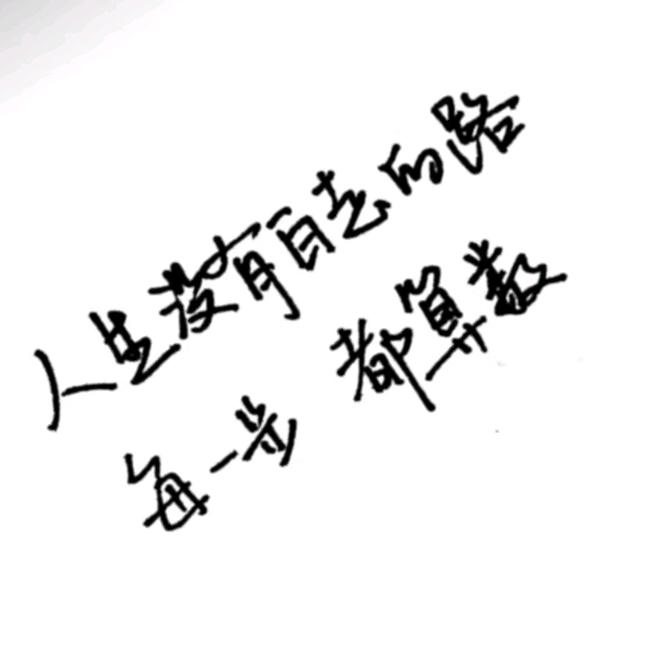 人生没有白走的路
每一步 都算数